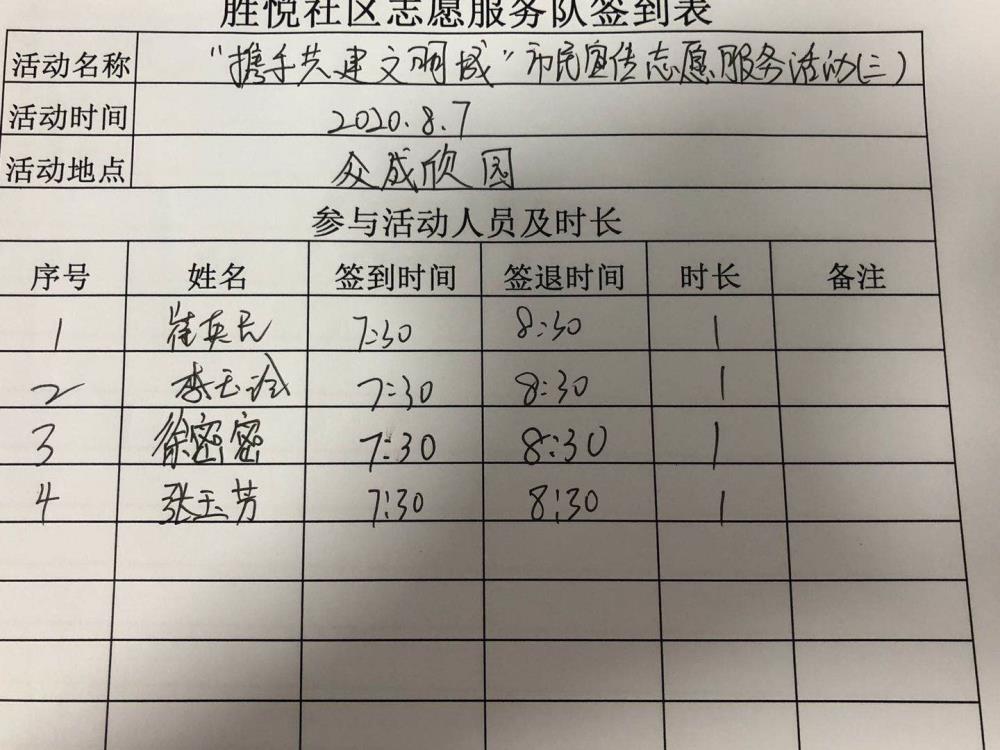 胜悦社区志愿服务队签到表
活动名称 “携手共建文明城”市民宣传志愿服务活动(三)
活动时间 2020.8.7
活动地点 众成欣园
参与活动人员及时长
序号 姓名 签到时间 签退时间 时长 备注
1 崔英民 7:30 8:30 1
2 李玉 7:30 8:30 1
3 徐密密 7:30 8:30 1
4 张玉芳 7:30 8:30 1